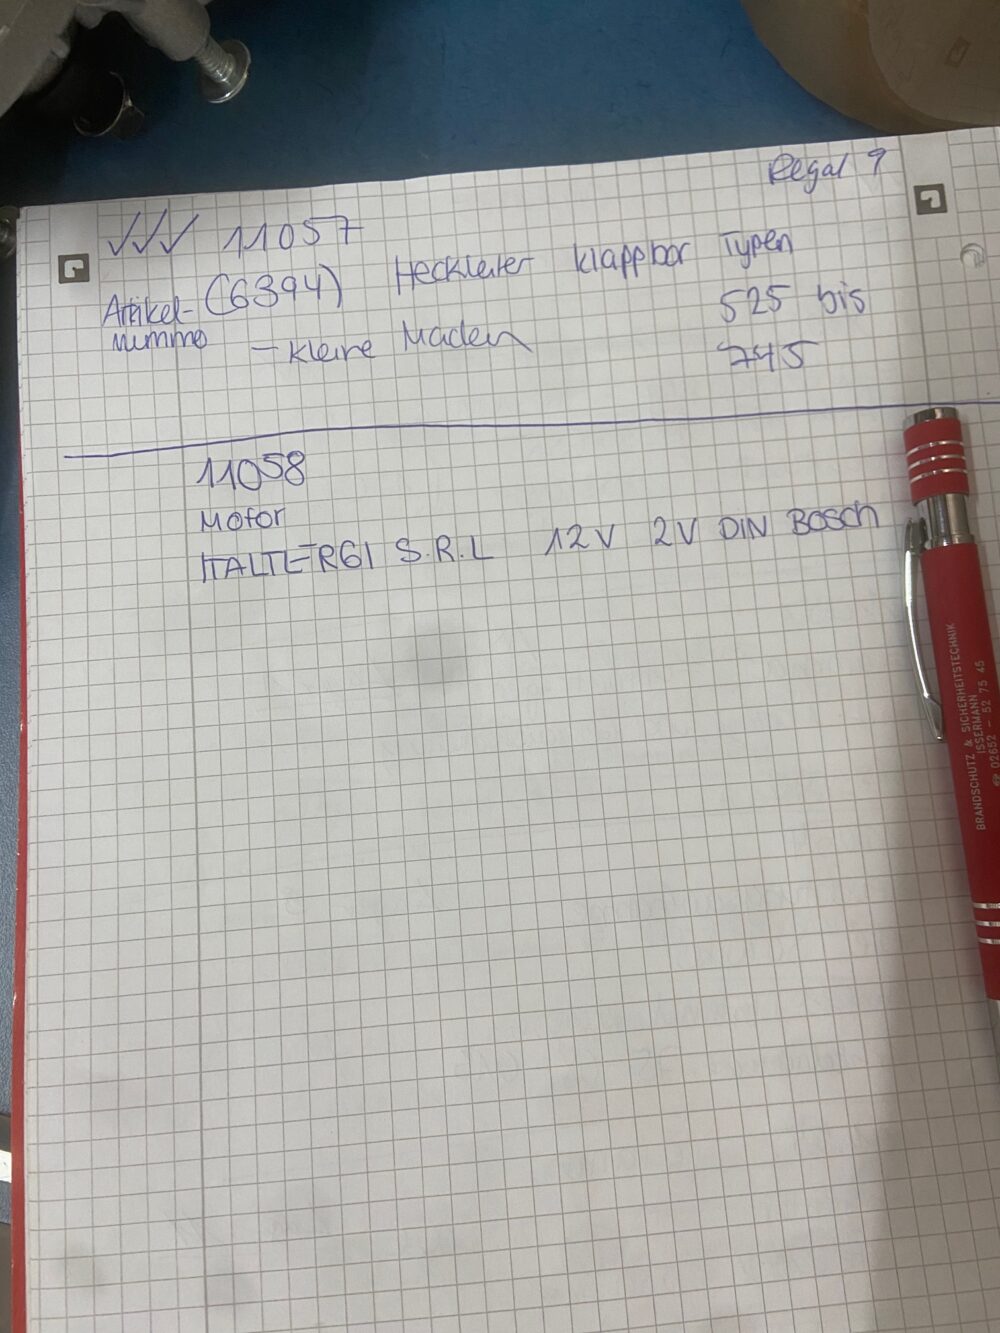 Regal 9
✓✓✓ 11057
Artikel- (6394) Heckleiter klappbar Typen
nummer
525 bis
- kleine Macken
745
11058
Motor
ITALTERGI S.R.L 12V 2V DIN Bosch
BRANDSCHUTZ & SICHERHEITSTECHNIK
ISSERMANN
☎ 02652 – 52 75 45